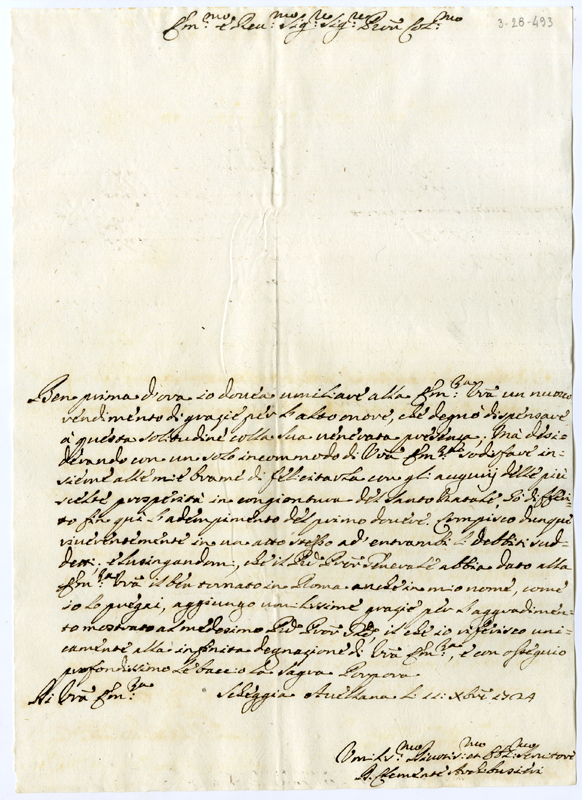 3-28-493
Em:mo e Reu:mo Sig:re Sig:re Pron Col:mo
Ben prima d'ora io douea umiliare alla Em:za Vra un nuouo
rendimento di grazie per l'alto onore, che degnò dispensare
à questa solitudine colla sua venerata presenza. Mà desi-
derando con un solo incommodo di Vra Em:za sodisfare in-
sieme alle mie brame di felicitarla con gli augurij delle più
scelte prosperità in congiontura del santo Natale, hò differi-
to fin qui l'adempimento del primo douere. Compisco dunque
riuerentemente in un atto stesso ad' entrambi li debiti sud-
detti; e lusingandomi, che il Pre Generale abbia dato alla
Em:za Vra il ben tornato in Roma anche in mio nome, come
io lo pregai, aggiungo umilissime grazie per l'aggradimen-
to mostrato al medesimo il che io riferisco uni-
camente alla infinita degnazione di Vra Em:za, e con ossequio
profondissimo le bacio la Sagra Porpora
Di Vra Em:za
Auellana li 11: Xbre 1724
Um:mo Diuot:mo et Obl:mo Seruitore
D. Clemente